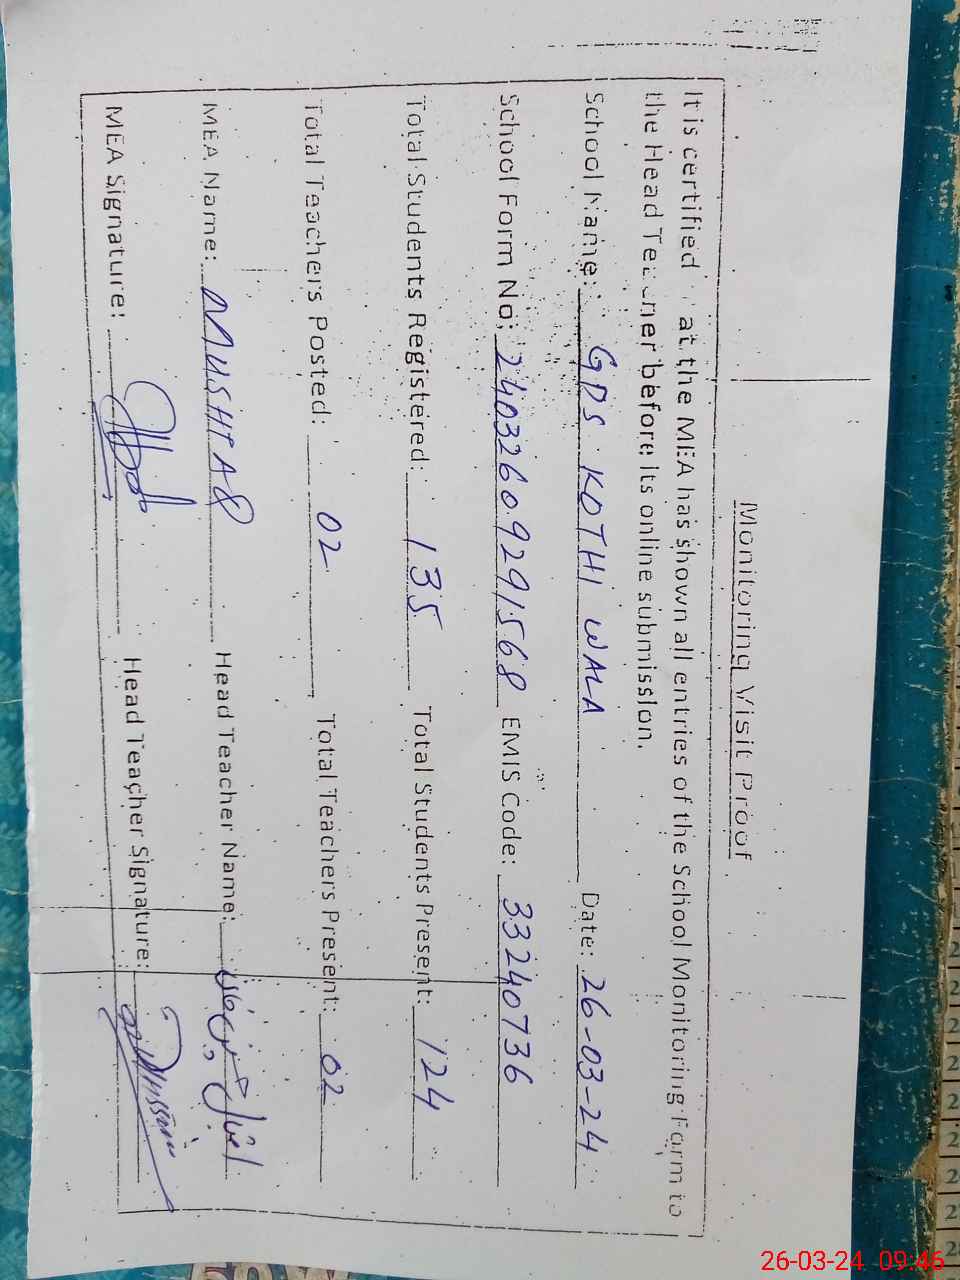 Monitoring Visit Proof
It is certified at the MEA has shown all entries of the School Monitoring Form to
the Head Teacher before its online submission.
School Name: GPS KOTHI WALA Date: 26-03-24
School Form No: 24032609291568 EMIS Code: 33240736
Total Students Registered: 135 Total Students Present: 124
Total Teachers Posted: 02 Total Teachers Present: 02
MEA Name: MUSHTAQ Head Teacher Name:
MEA Signature: Head Teacher Signature:
26-03-24 09:46